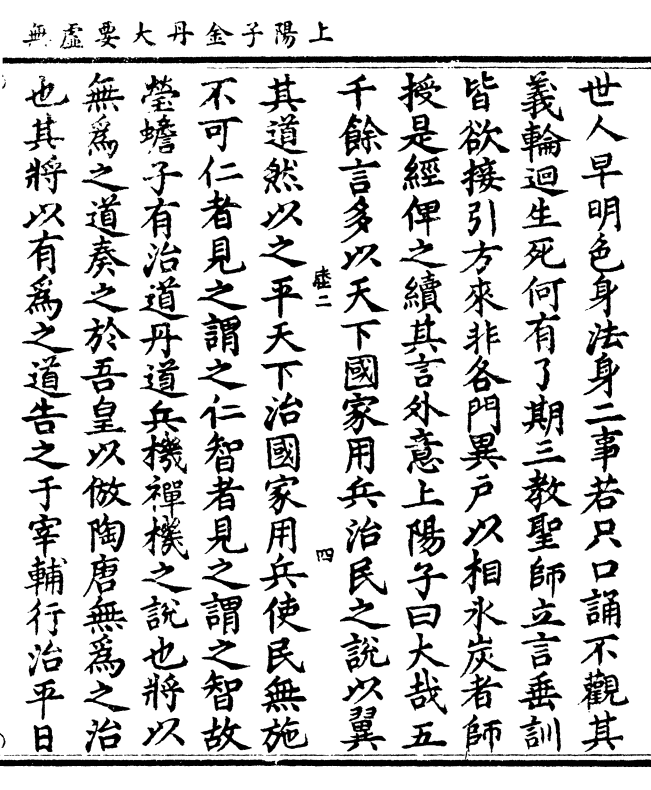 上陽子金丹大要虛無
世人早明色身法身二事若只口誦不觀其
義輪迴生死何有了期三教聖師立言垂訓
皆欲接引方來非各門異戶以相氷炭者師
授是經俾之續其言外意上陽子曰大哉五
千餘言多以天下國家用兵治民之說以翼
虛二
四
其道然以之平天下治國家用兵使民無施
不可仁者見之謂之仁智者見之謂之智故
瑩蟾子有治道丹道兵機禪機之說也將以
無爲之道奏之於吾皇以倣陶唐無爲之治
也其將以有爲之道告之于宰輔行治平日